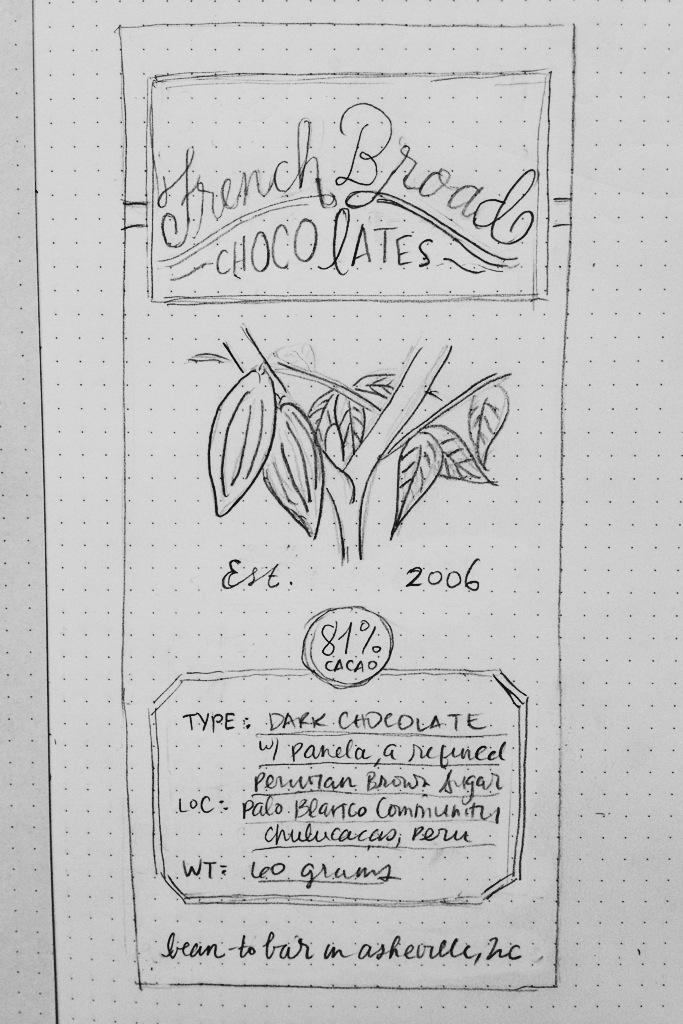 French Broad
CHOCOlATES
Est. 2006
81%
CACAO
TYPE: DARK CHOCOLATE
w/ panela, a refined
Peruvian Brown Sugar
LOC: Palo Blanco Community
Chulucacas, Peru
WT: 60 grams
bean to bar in asheville, nc